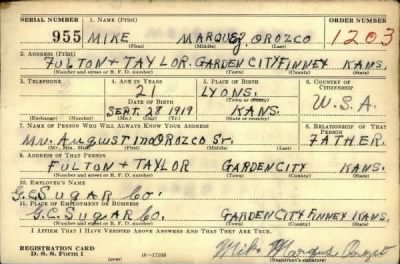 SERIAL NUMBER 1. NAME (Print) ORDER NUMBER
955 MIKE MARQUEZ OROZCO 1203
(First) (Middle) (Last)
2. ADDRESS (Print)
FULTON + TAYLOR. GARDEN CITY FINNEY KANS.
(Number and street or R. F. D. number) (Town) (County) (State)
3. TELEPHONE 4. AGE IN YEARS 5. PLACE OF BIRTH 6. COUNTRY OF CITIZENSHIP
21 LYONS.
DATE OF BIRTH (Town or county) U.S.A.
SEPT. 28 1919 KANS.
(Exchange) (Number) (Mo.) (Day) (Yr.) (State or country)
7. NAME OF PERSON WHO WILL ALWAYS KNOW YOUR ADDRESS 8. RELATIONSHIP OF THAT PERSON
Mr. AUGUSTIN OROZCO Sr. FATHER.
(Mr., Mrs., Miss) (First) (Middle) (Last)
9. ADDRESS OF THAT PERSON
FULTON + TAYLOR GARDEN CITY KANS.
(Number and street or R. F. D. number) (Town) (County) (State)
10. EMPLOYER'S NAME
G.C. SUGAR CO.
11. PLACE OF EMPLOYMENT OR BUSINESS
G.C. SUGAR CO. GARDEN CITY FINNEY KANS.
(Number and street or R. F. D. number) (Town) (County) (State)
I AFFIRM THAT I HAVE VERIFIED ABOVE ANSWERS AND THAT THEY ARE TRUE.
REGISTRATION CARD
D. S. S. Form 1 16—17105 Mike Marquez Orozco
(Registrant's signature)